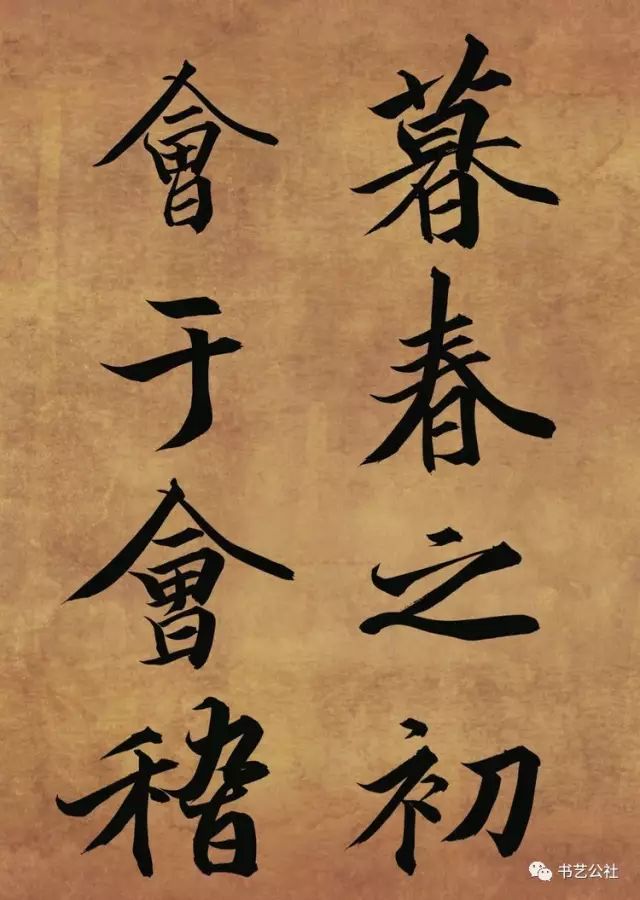 暮春之初
會于會稽
书艺公社